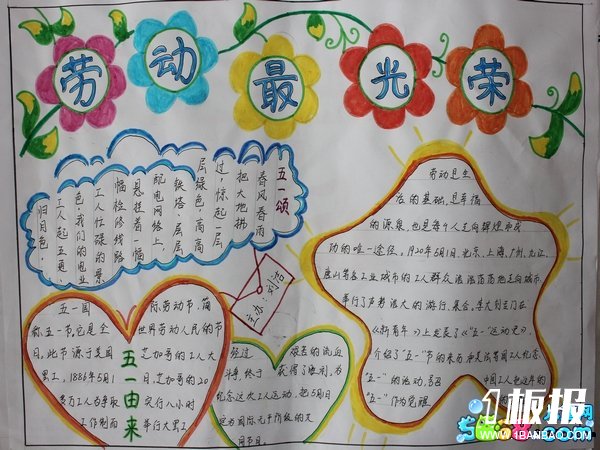 劳动最光荣
五一颂
春风春雨
把大地拂
过,惊起一层
层绿色,高高
铁塔,层层
配电网络上,
悬挂着一幅
幅检修线路
工人忙碌的景
色,我们的电业
工人起五更,
归月色,
劳动是生
活的基础,是幸福
的源泉,也是每个人走向辉煌成
功的唯一途径。1920年5月1日,北京、上海、广州、九江、
唐山等各工业城市的工人群众浩浩荡荡地走向城市
举行了声势浩大的游行、集会。李大钊专门在
《新青年》上发表了《"五一"运动史》,
介绍了"五一"节的来历和美法等国工人纪念
"五一"的活动,号召
中国工人把这年的
"五一"作为觉醒
五一由来
五一国际劳动节,简
称五一节,它是全世界劳动人民的节
日,此节源于美国芝加哥的工人大
罢工,1886年5月1日,芝加哥的20
多万工人为争取实行八小时
工作制而举行大罢工
经过艰苦的流血
斗争,终于获得了胜利,为
纪念这次工人运动,把5月1日
定为国际无产阶级的
节日。
1板报
WWW.1BANBAO.COM